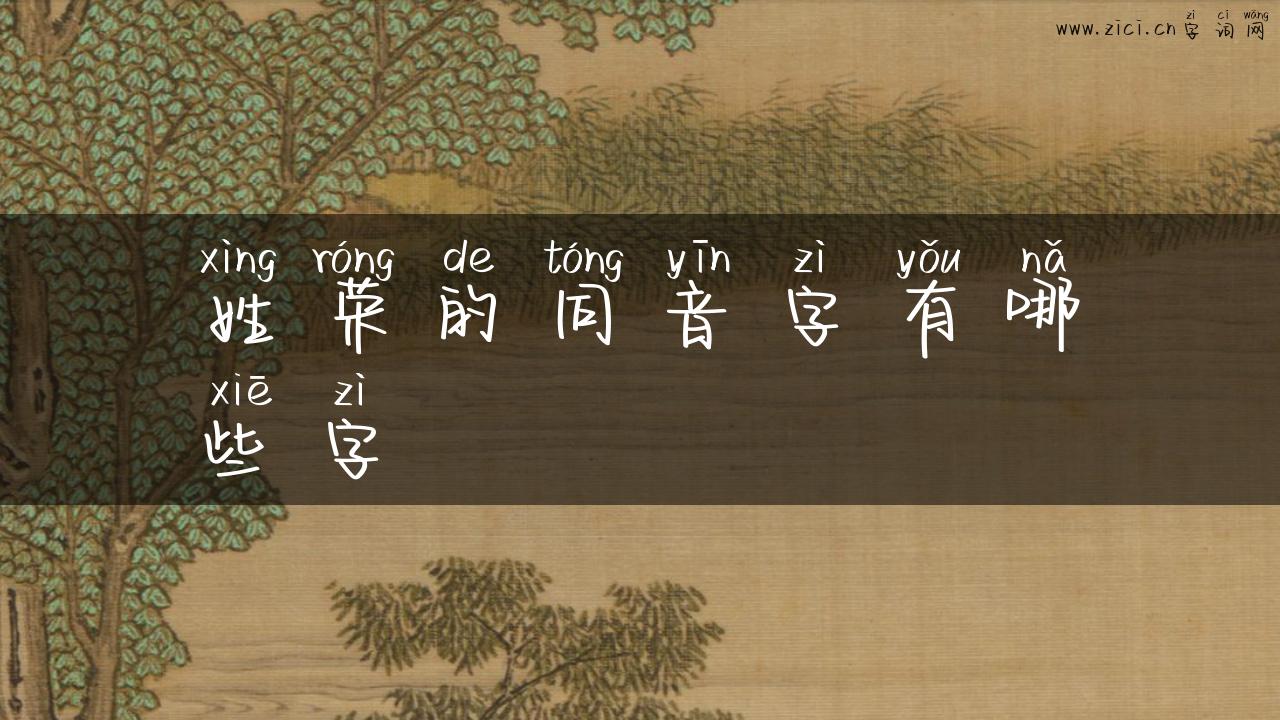 zì cí wǎng
www.zici.cn字词网
xìng róng de tóng yīn zì yǒu nǎ
姓荣的同音字有哪
xiē zì
些字